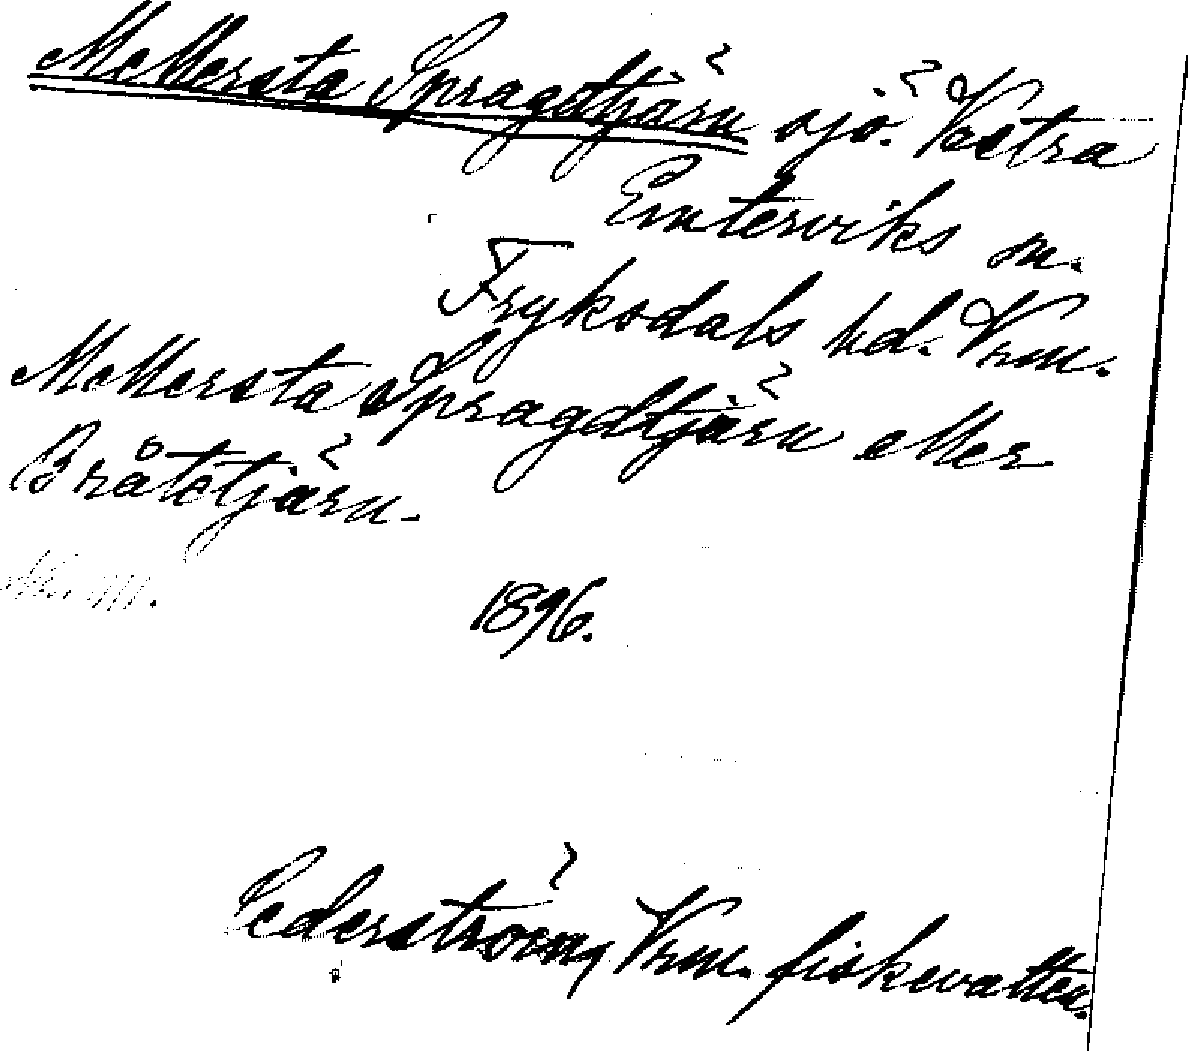 Mellersta Spragdtjärn sjö. Vestra
Emterviks sn.
Fryksdals hd. Vrm.
Mellersta Spragdtjärn eller
Bråtetjärn.
1896.
Cederström, Vrm. fiskevatten.